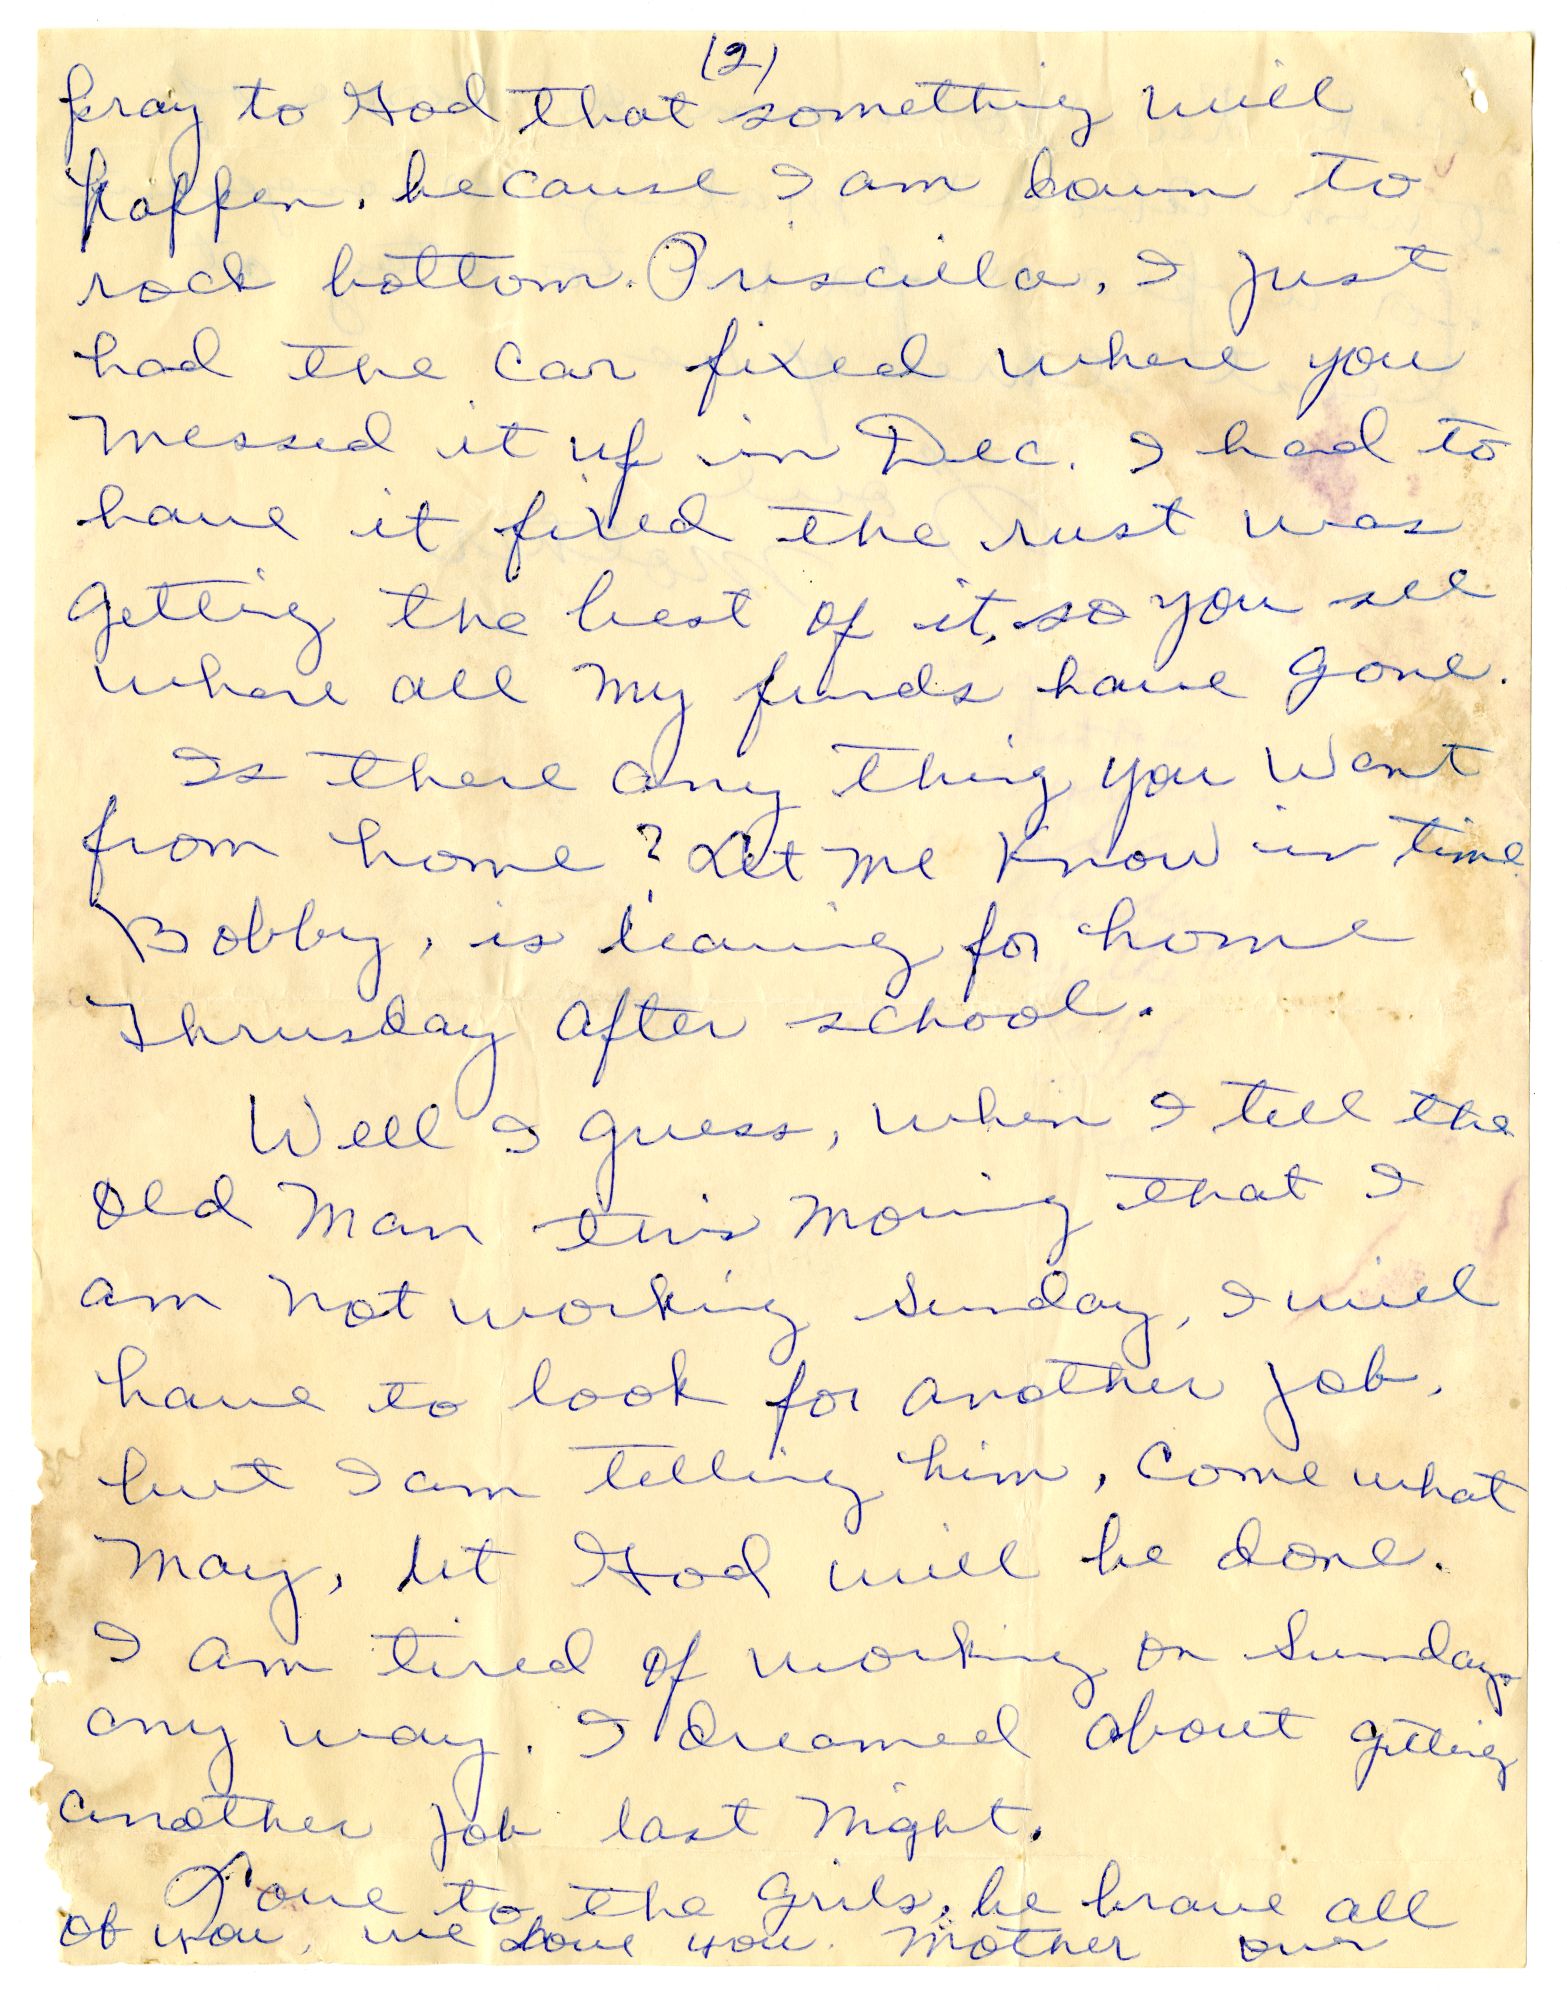 (2)
pray to God that something will
happen. because I am down to
rock bottom. Priscilla, I just
had the car fixed where you
messed it up in Dec. I had to
have it fixed the rust was
getting the best of it, so you see
where all my funds have gone.
Is there any thing you want
from home? Let me know in time.
Bobby, is leaving for home
Thrusday after school.
Well I guess, when I tell the
Old Man this moring that I
am not working Sunday, I will
have to look for another job.
but I am telling him, come what
may, let God will be done.
I am tired of working on Sunday
any way. I dreamed about getting
another job last night.
Love to the Grils, be brave all
of you, we love you. Mother over